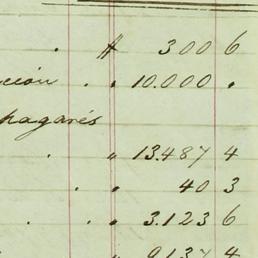 . # 300 6
ción . . 10.000 .
pagarés
. " 13.487 4
. " 40 3
. . " 3.123 6
" 9.137 4